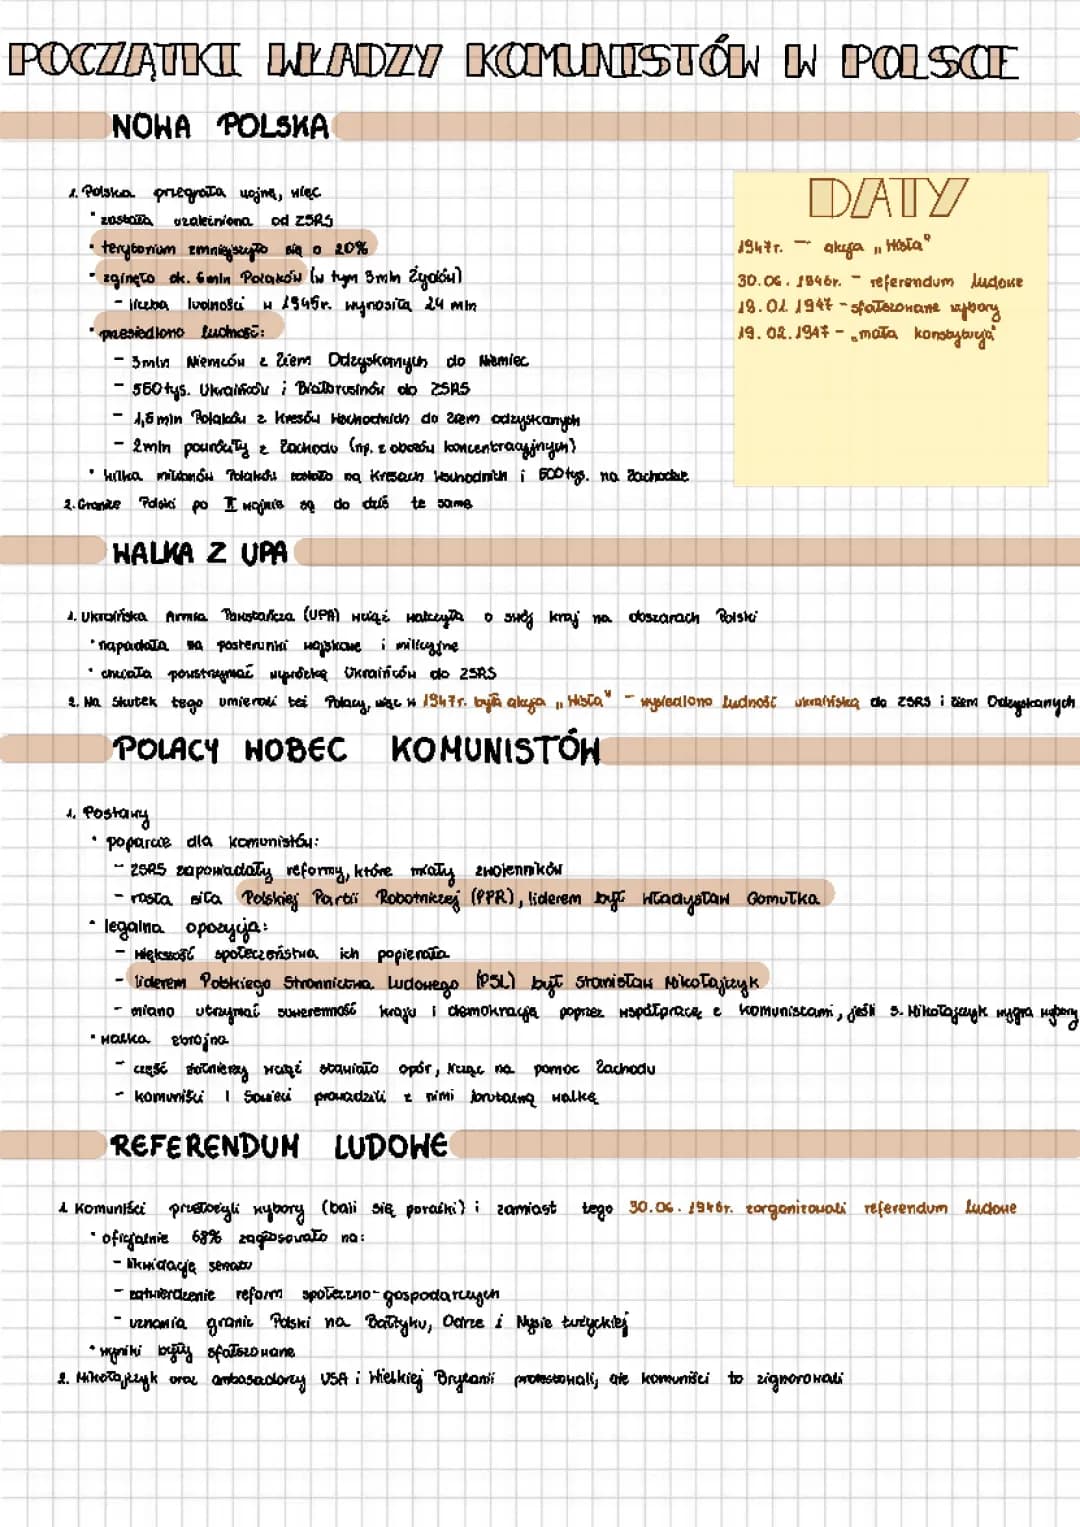 POCZĄTKI WŁADZY KOMUNISTÓW W POLSCE
NOWA POLSKA
1. Polska przegrała wojnę, więc
• została uzależniona od ZSRS
• terytorium zmniejszyło się o 20%
• zginęło ok. 6mln Polaków (w tym 3mln Żydów)
- liczba ludności w 1945r. wynosiła 24 mln
• przesiedlono ludność:
- 3mln Niemców z Ziem Odzyskanych do Niemiec
- 560tys. Ukraińców i Białorusinów do ZSRS
- 1,5mln Polaków z Kresów Wschodnich do ziem odzyskanych
- 2mln powróciły z Zachodu (np. z obozów koncentracyjnych)
• kilka milionów Polaków zostało na Kresach Wschodnich i 500tys. na Zachodzie
2. Granice Polski po II wojnie są do dziś te same
DATY
1947r. - akcja „Wisła"
30.06.1946r. - referendum ludowe
19.01.1947 - sfałszowane wybory
19.02.1947 - „mała konstytucja"
WALKA Z UPA
1. Ukraińska Armia Powstańcza (UPA) wciąż walczyła o swój kraj na obszarach Polski
• napadała na posterunki wojskowe i milicyjne
• chciała powstrzymać wywózkę Ukraińców do ZSRS
2. Na skutek tego umierali też Polacy, więc w 1947r. była akcja „Wisła" - wysiedlono ludność ukraińską do ZSRS i Ziem Odzyskanych
POLACY WOBEC KOMUNISTÓW
1. Postawy
• poparcie dla komunistów:
- ZSRS zapowiadały reformy, które miały zwolenników
- rosła siła Polskiej Partii Robotniczej (PPR), liderem był Władysław Gomułka
• legalna opozycja:
- większość społeczeństwa ich popierała
- liderem Polskiego Stronnictwa Ludowego (PSL) był Stanisław Mikołajczyk
- miano utrzymać suwerenność kraju i demokrację poprzez współpracę z komunistami, jeśli S. Mikołajczyk wygra wybory
• walka zbrojna
- część żołnierzy wciąż stawiało opór, licząc na pomoc Zachodu
- komuniści i Sowieci prowadzili z nimi brutalną walkę
REFERENDUM LUDOWE
1. Komuniści przełożyli wybory (bali się porażki) i zamiast tego 30.06.1946r. zorganizowali referendum ludowe
• oficjalnie 68% zagłosowało na:
- likwidację senatu
- zatwierdzenie reform społeczno-gospodarczych
- uznania granic Polski na Bałtyku, Odrze i Nysie Łużyckiej
• wyniki były sfałszowane
2. Mikołajczyk oraz ambasadorzy USA i Wielkiej Brytanii protestowali, ale komuniści to zignorowali